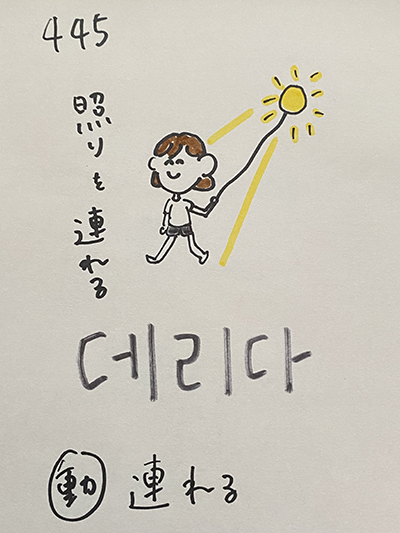 445
照りを連れる
데리다
動 連れる